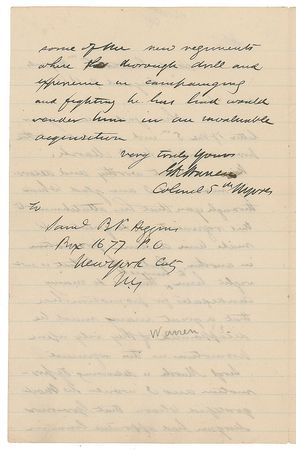 some of the new regiments
where thorough drill and
experience in campaigning
and fighting he has had would
render him in an invaluable
acquisition
very truly yours
GK Warren
Colonel 5th NY Vols
To
B.F. Higgins
Box 1677 P.O
New York City
N.Y
Warren